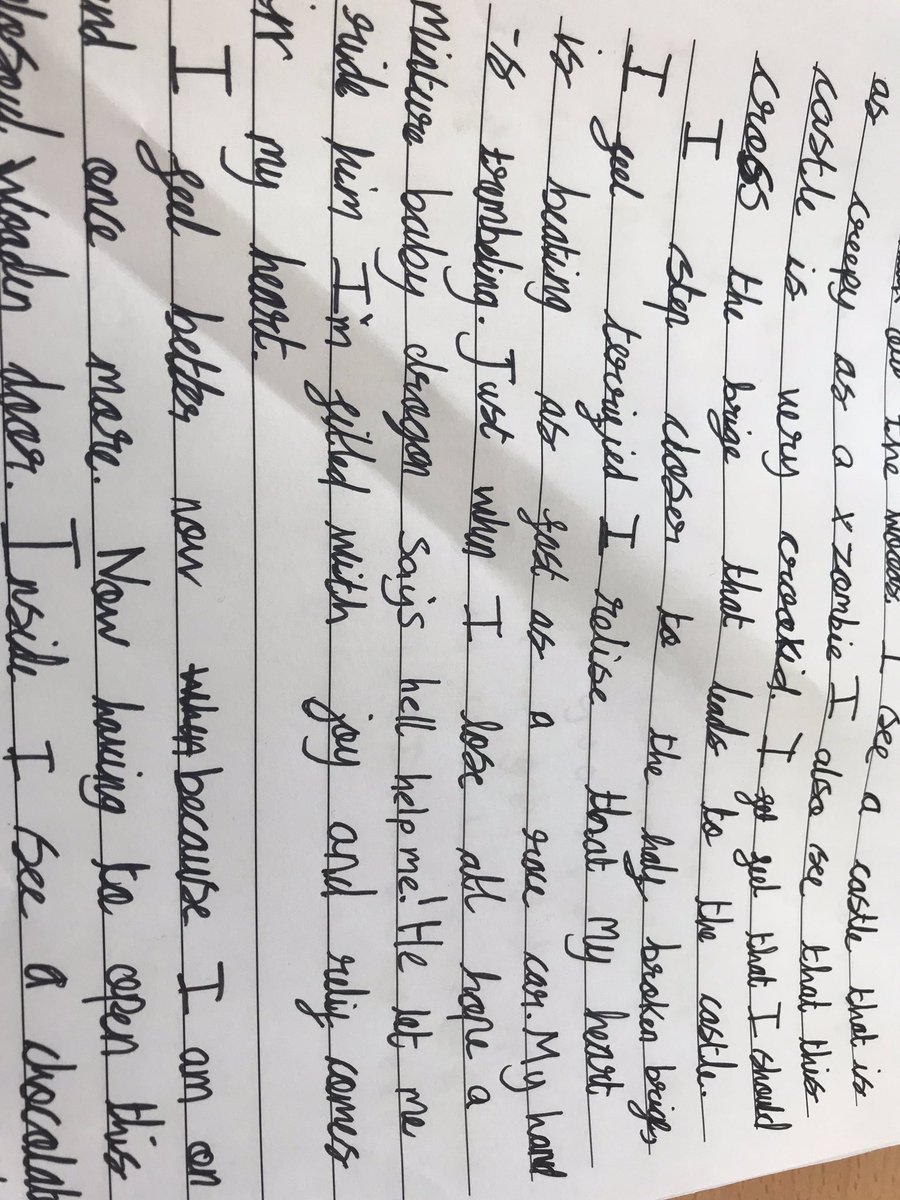 the woods. I see a castle that is
as creepy as a x zombie I also see that this
castle is very crookid. I feel that I should
cross the brige that leads to the castle.
I step closer to the half broken brige
I feel terrified I relise that my heart
is beating as fast as a race car. My hand
is trembeling. Just when I lose all hope a
Minture baby dragon says hell help me! He let me
ride him I'm filled with joy and reliy comes
in my heart.
I feel better now when because I am on
land once more. Now having to open this
wooden door. Inside I see a